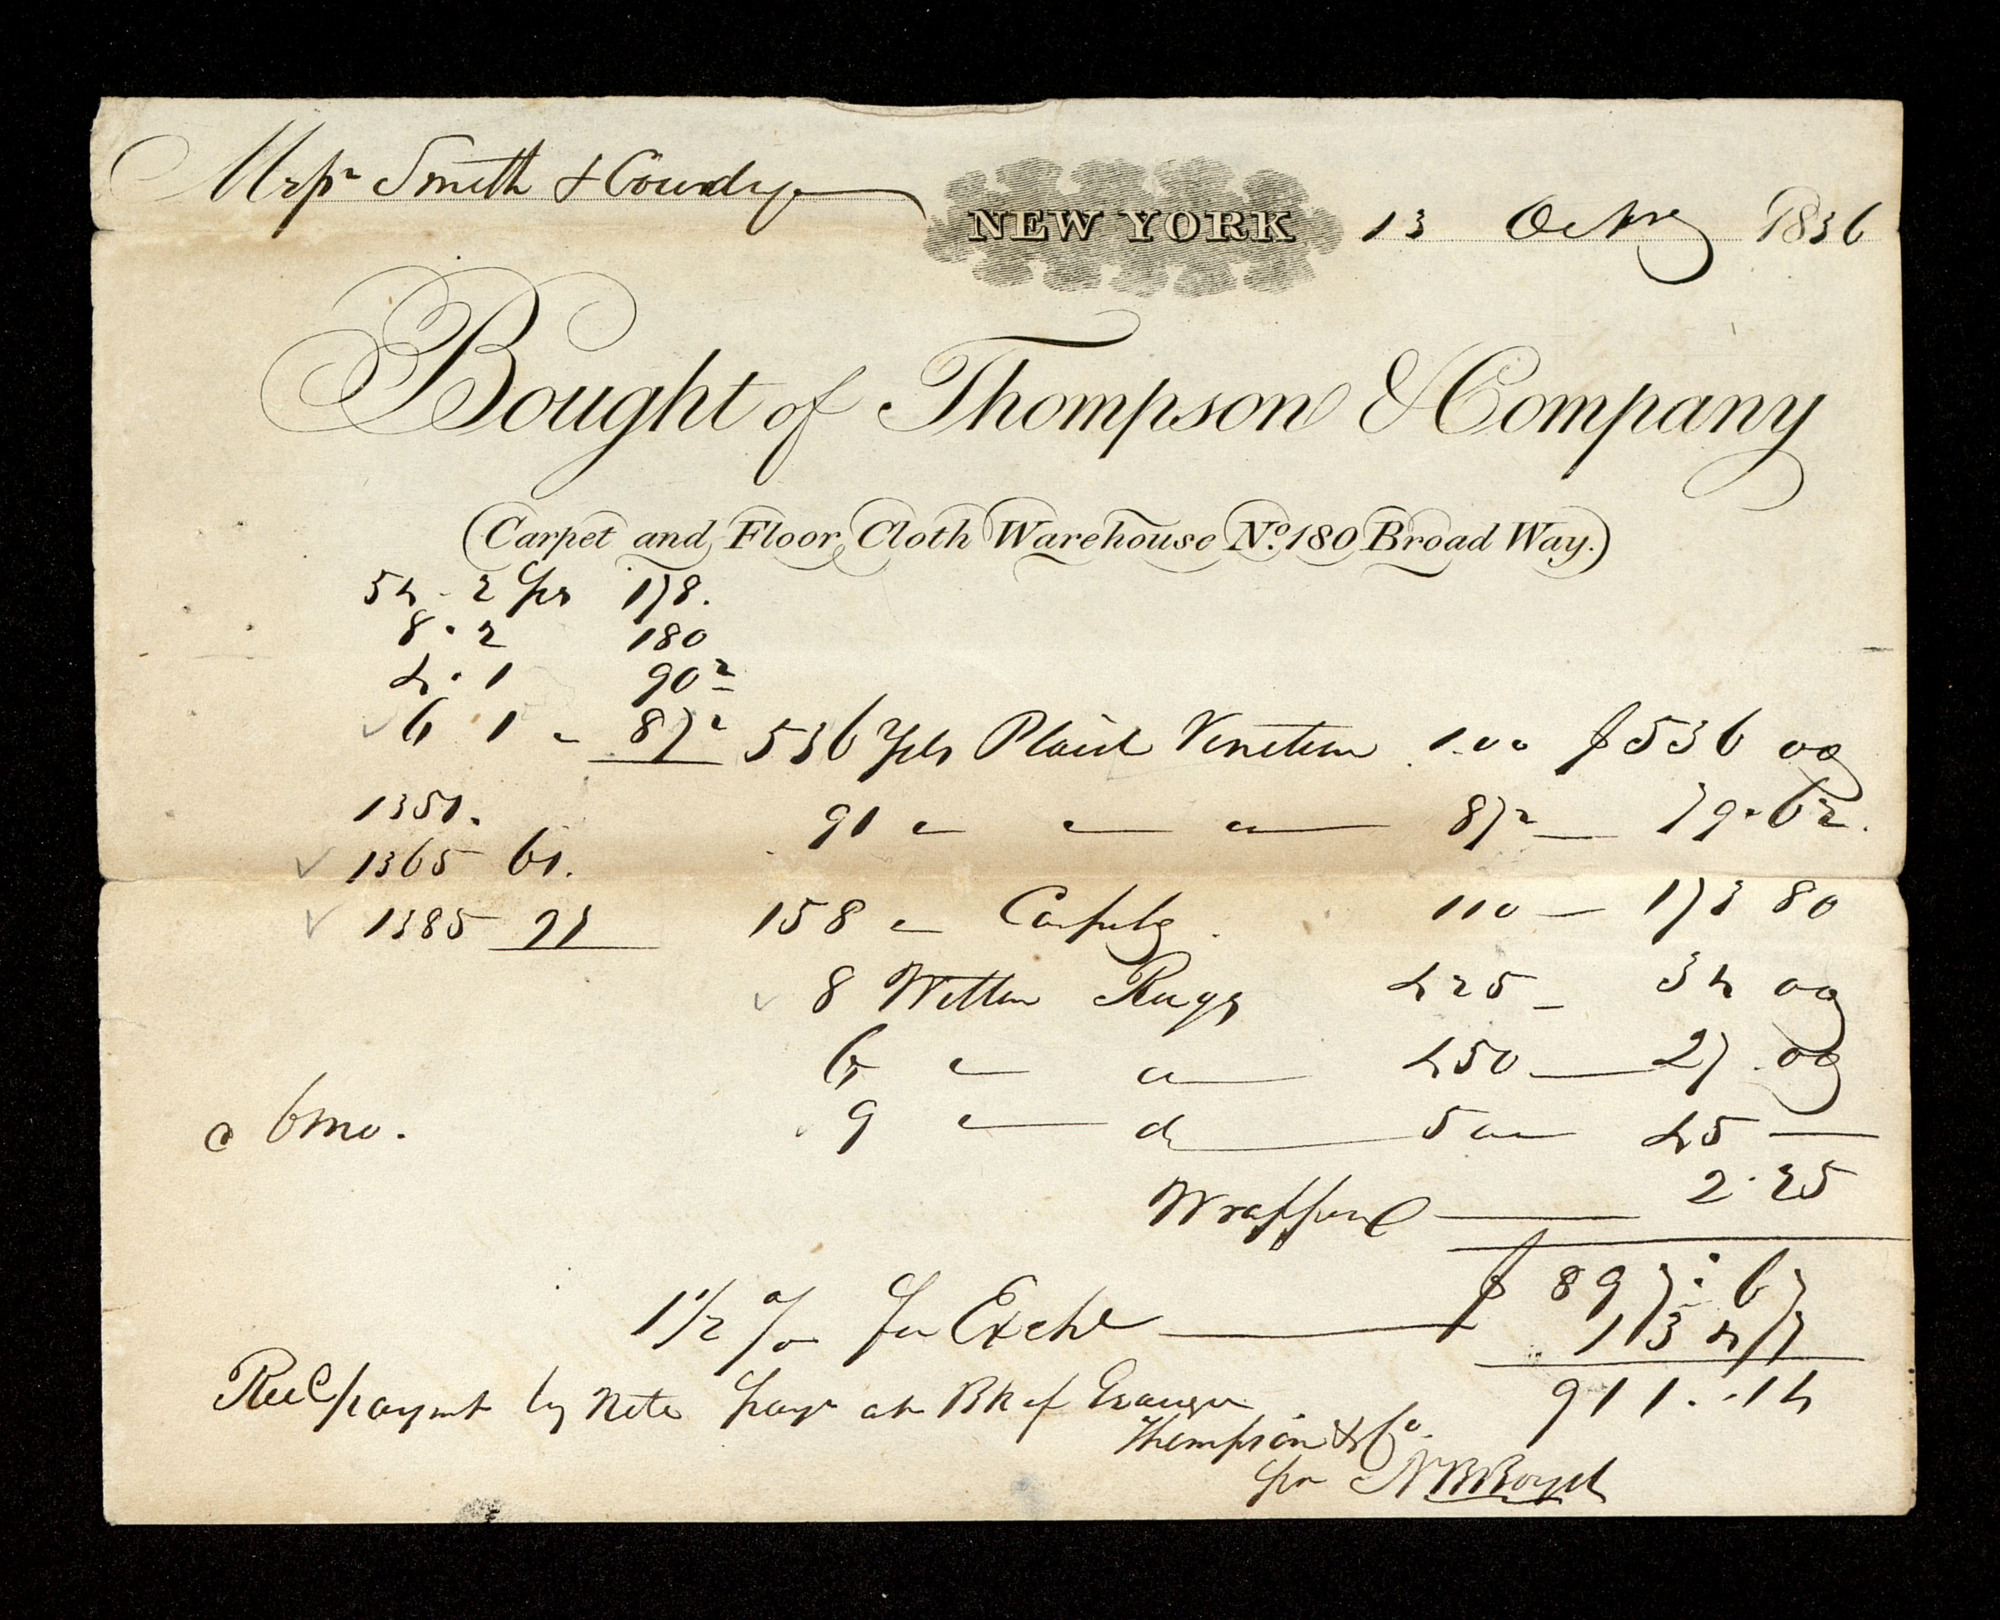 Messrs Smith & Cowdry
NEW YORK 13 Octbre 1836
Bought of Thompson & Company
(Carpet and Floor Cloth Warehouse No. 180 Broad Way.)
54 - 2 ps 178.
8 . 2 180
4 . 1 90 2
6 1 - 87 2 536 Yds Plaid Venetian 1.00 $536 00
1351. 91 " " " 87 2 79.62.
1365 61.
1385 97 158 " Carpetg 110 173 80
8 Wilton Rugs 425 34 00
6 " " 450 27.00
@ 6mo. 9 " " 500 45
Wrapper 2.25
$ 897:67
1 1/2 % for Exche 13 47
911..14
Recd payment by Note pay at Bk of
Thompson & Co.
per N B Boyd